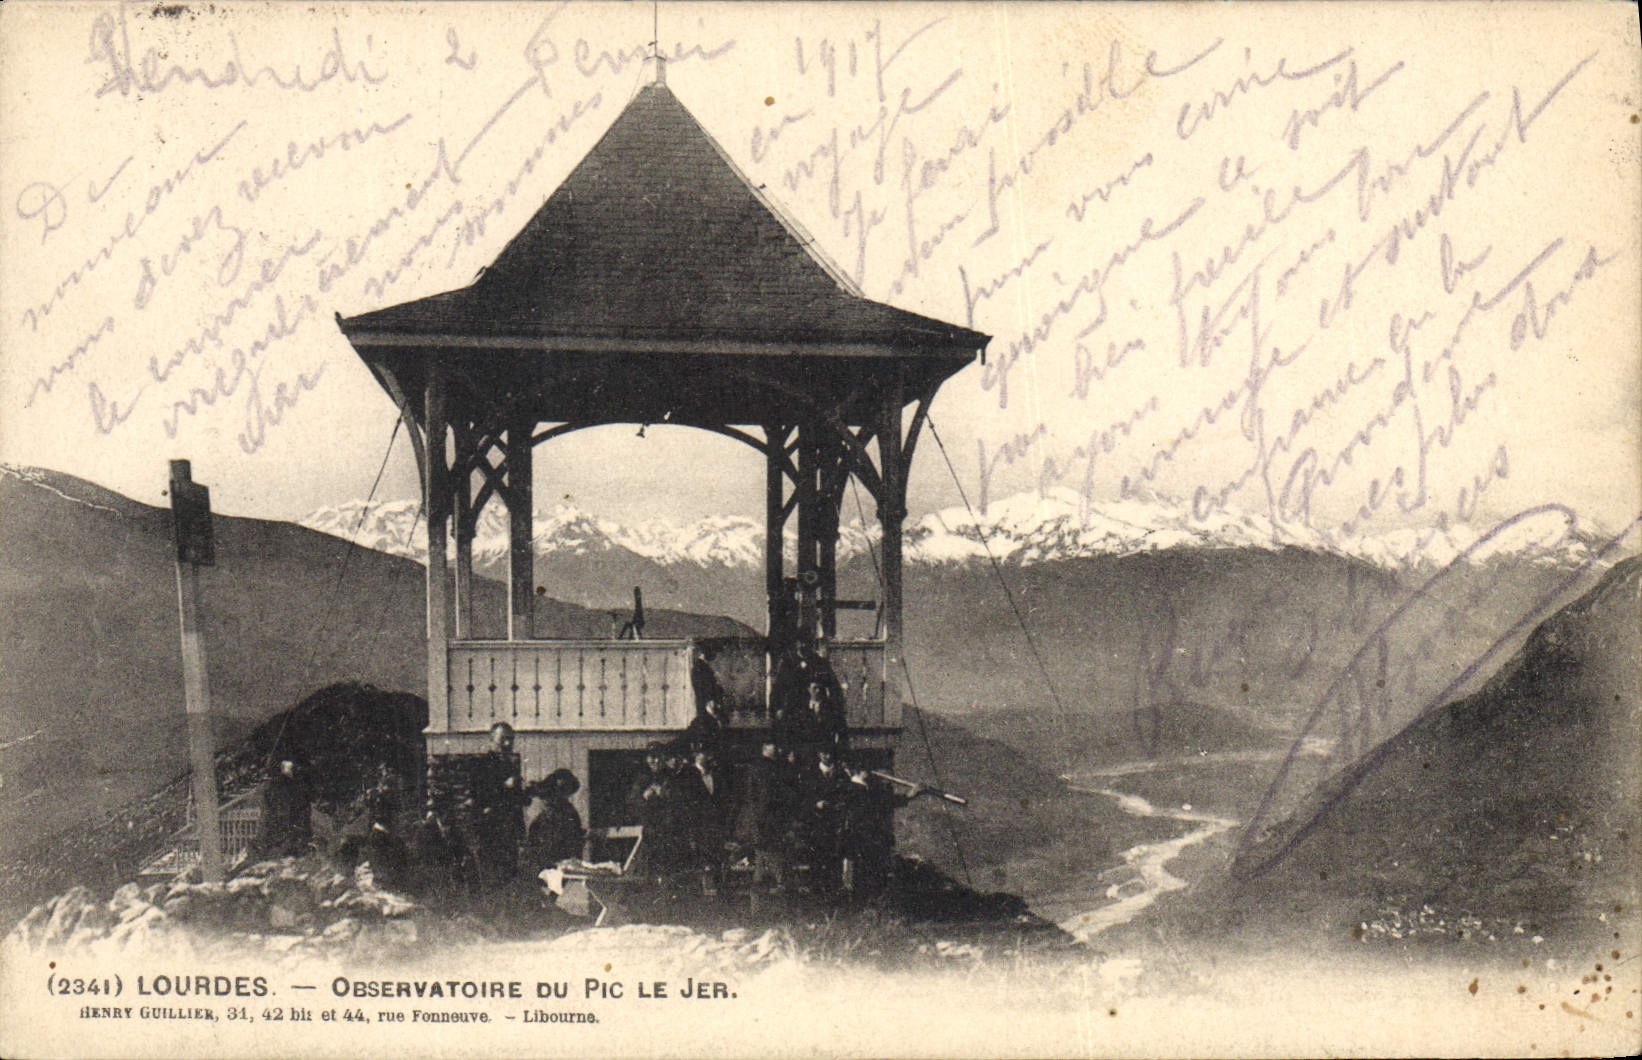 Vendredi 2 Février 1917
De
nouveau
en
voyage
vous devez recevoir
le courrier
irrégulièrement
car nous sommes
Je ferai
mon possible
pour vous écrire
quoique ce soit
pas bien facile
ayons toujours bon
courage et surtout
confiance en la
Providence
mes plus
(2341) LOURDES. — OBSERVATOIRE DU PIC LE JER.
HENRY GUILLIER, 31, 42 bis et 44, rue Fonneuve. - Libourne.